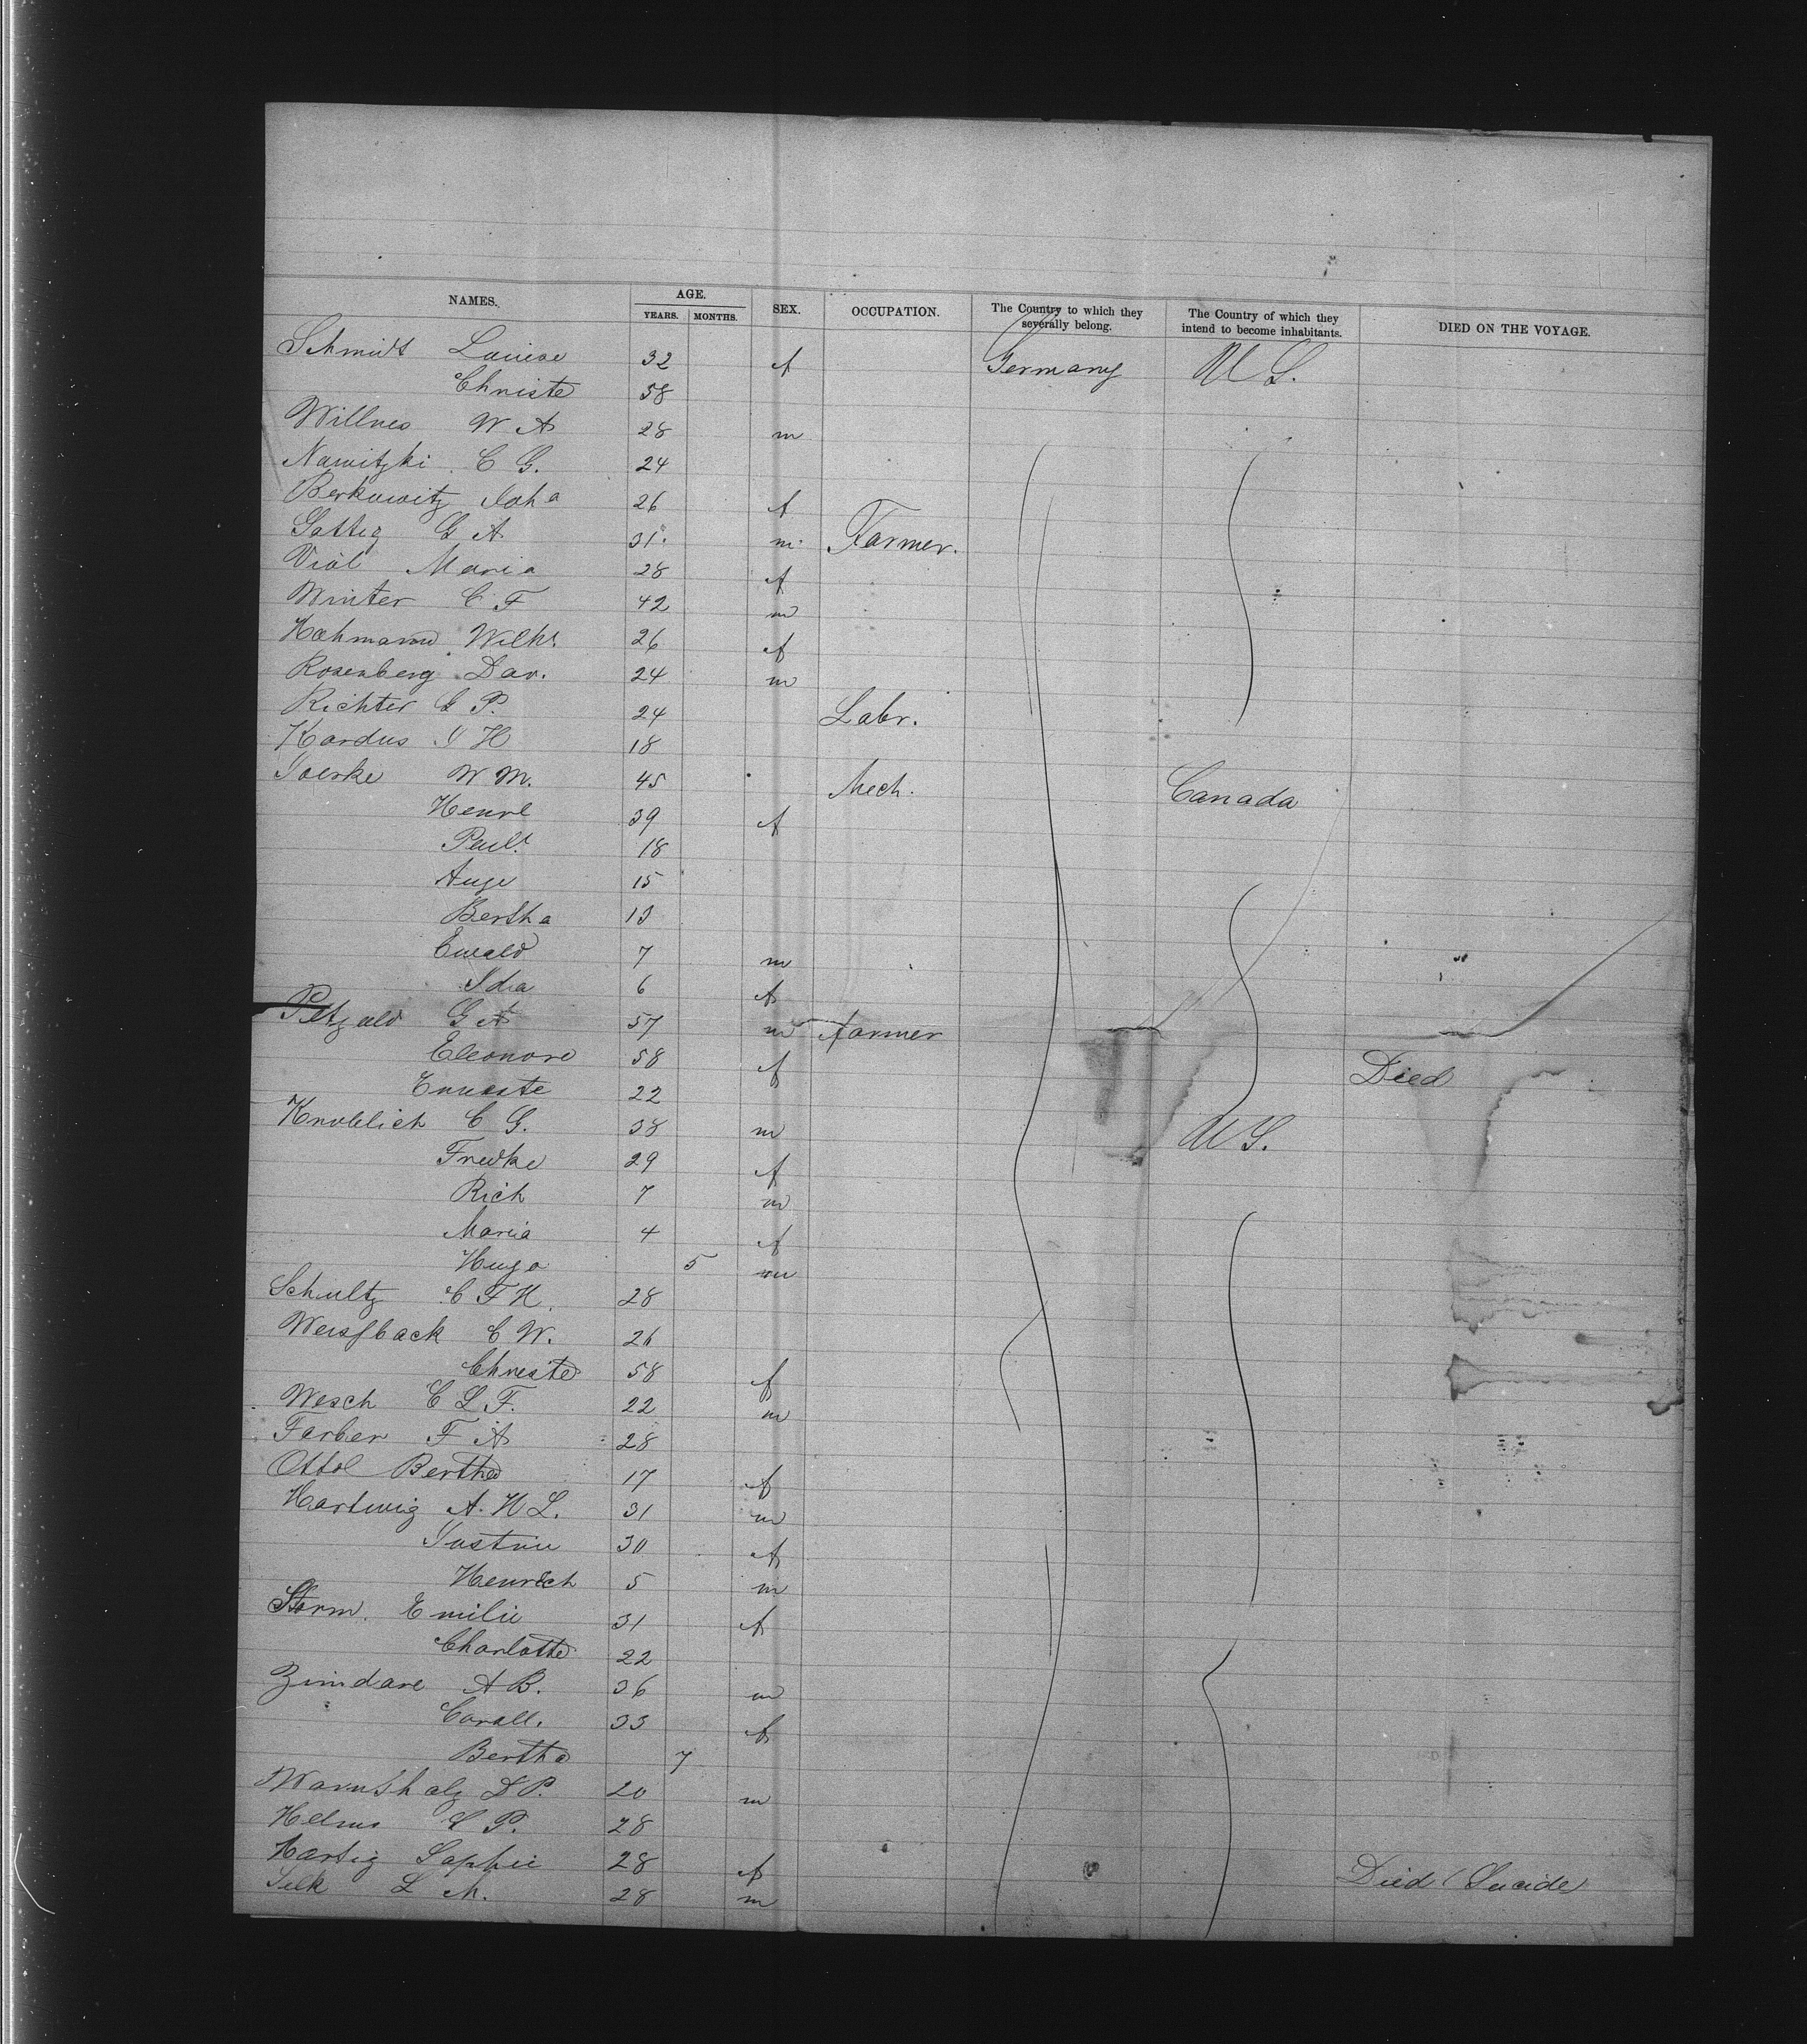 NAMES. AGE. SEX. OCCUPATION. The Country to which they severally belong. The Country of which they intend to become inhabitants. DIED ON THE VOYAGE.
YEARS. MONTHS.
Schmidt Louise 32 f Germany U S.
Christe 58
Willnes W A 28 m
Nawitzki C G. 24
Berkowitz Joha 26 f
Sattig G A 31 m Farmer.
Viol Maria 28 f
Winter C F 42 m
Hohmann Wilhe. 26 f
Rosenberg Dav. 24 m
Richter G P. 24 Labr.
Kardus J H 18
W M. 45 Mech. Canada
Henrl 39 f
Paul. 18
Auge 15
Bertha 13
Ewald 7 m
Ida 6 f
Petzold G A 57 m farmer
Eleonore 58 f Died
22
Knoblich C G. 38 m U S.
Fredke 29 f
Rich 7 m
Maria 4 f
Hugo 5 m
Schultz C F H. 28
Weissback C W. 26
Christe 58 f
Wesch C L F. 22 m
Farber F A 28
Bertha 17 f
Hartwig A. H L. 31 m
Justin 30 f
Heinrich 5 m
Storm. Emilie 31 f
Charlotte 22
Zimdare A B. 36 m
Caroll. 33 f
Bertha 7
Warnsholz D P. 20 m
Helms P. 28
Hartig Sophie 28 f Died (Sucide)
L M. 28 m